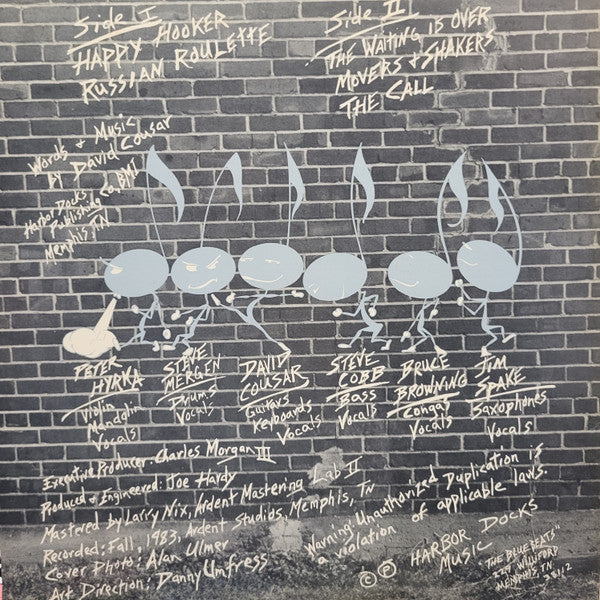 Side I
HAPPY HOOKER
RUSSIAN ROULETTE
Side II
THE WAITING IS OVER
MOVERS + SHAKERS
THE CALL
Words + Music
by David Cousar
Harbor Docks
Publishing Co. BMI
Memphis, TN
PETER
HYRKA
Violin
Mandolin
Vocals
STEVE
MERGEN
Drums
Vocals
DAVID
COUSAR
Guitars
Keyboards
Vocals
STEVE
COBB
Bass
Vocals
BRUCE
BROWNING
Congas
Vocals
JIM
SPAKE
Saxophones
Vocals
Executive Producer: Charles Morgan III
Produced + Engineered: Joe Hardy
Mastered by Larry Nix, Ardent Mastering Lab II
Recorded: Fall, 1983, Ardent Studios, Memphis, TN
Cover Photo: Alan Ulmer
Art Direction: Danny Umfress
Warning: Unauthorized Duplication is
a violation of applicable laws.
© ℗ HARBOR DOCKS
MUSIC
"THE BLUE BEATS"
WILLIFORD
MEMPHIS, TN
38112